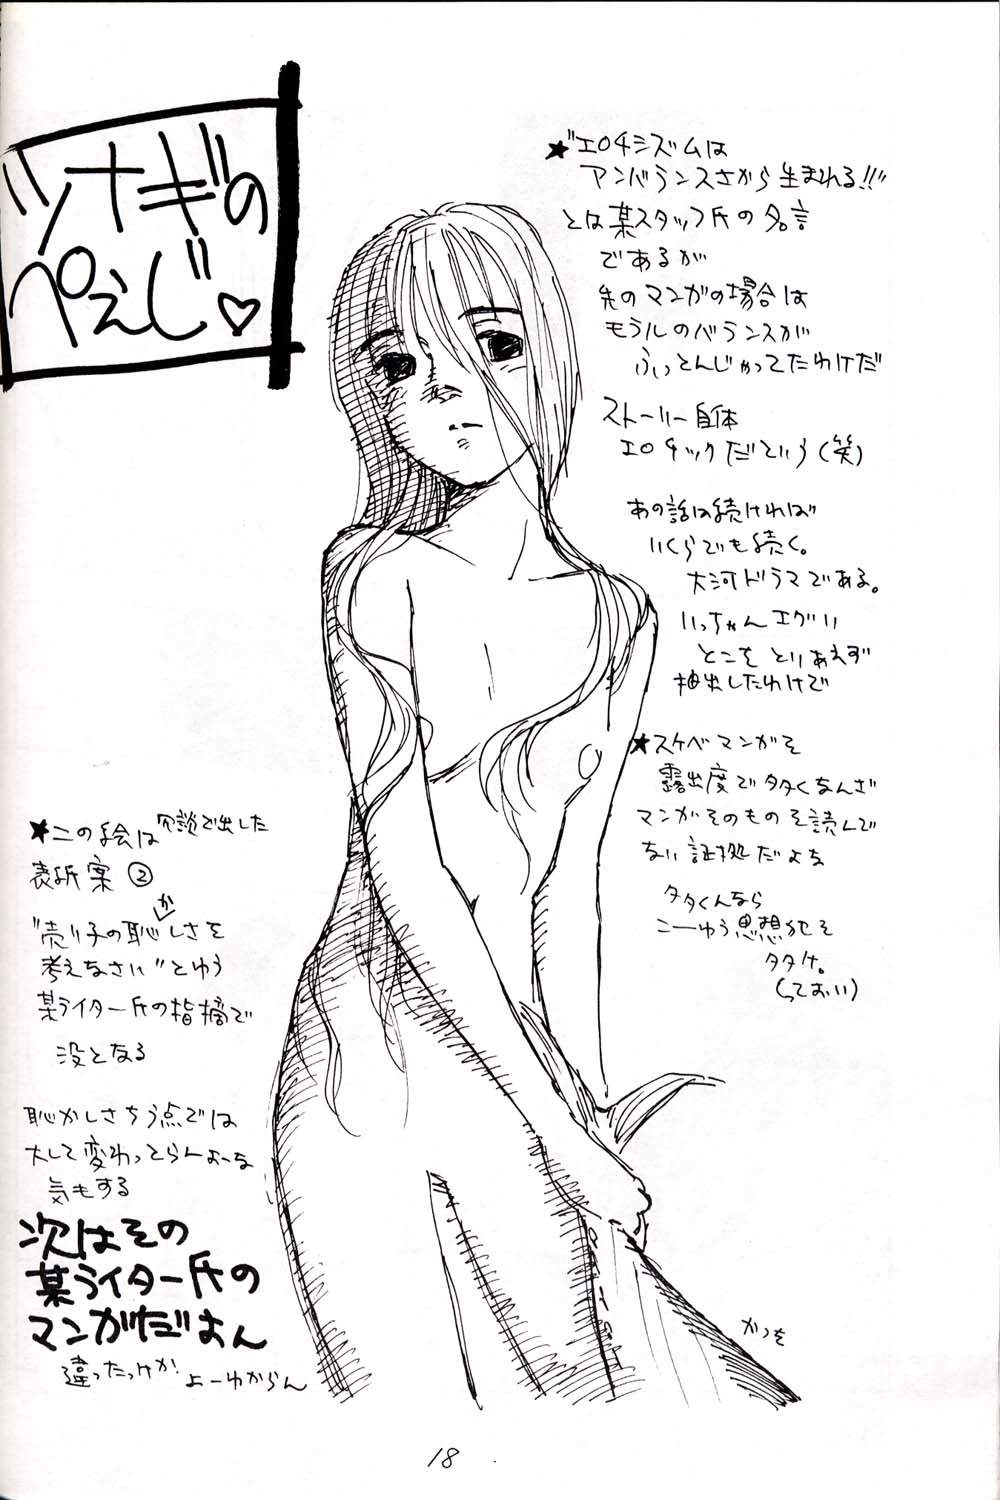 ツナギの
ぺえじ♡
★"エロチシズムは
アンバランスさから生まれる!!"
とは某スタッフ氏の名言
であるが
先のマンガの場合は
モラルのバランスが
ふっとんじゃってたわけだ
ストーリー自体
エロチックだという(笑)
あの話は続ければ
いくらでも続く。
大河ドラマである。
いっちゃんエグい
とこをとりあえず
抽出したわけで
★スケベマンガを
露出度でタタくなんざ
マンガそのものを読んで
ない証拠だよな
タタくんなら
こーゆう思想犯を
タタけ。
(っておい)
★この絵は冗談で出した
表紙案②
"売り子の恥かしさを
考えなさい"とゆう
某ライター氏の指摘で
没となる
恥かしさちう点では
大して変わってらんよーな
気もする
次はその
某ライター氏の
マンガだよん
違ったっけか。よーわからん
かつを
18